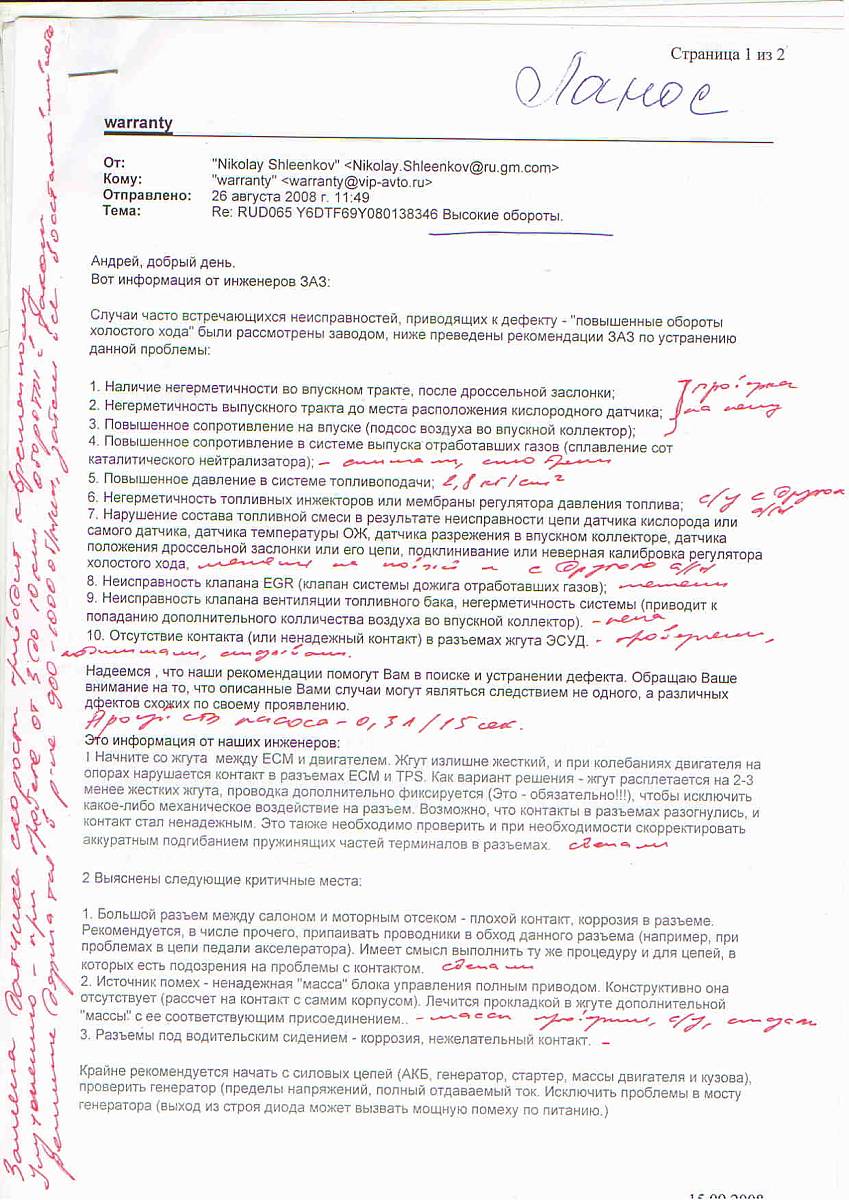 Страница 1 из 2
Ланос
warranty
От: "Nikolay Shleenkov" <Nikolay.Shleenkov@ru.gm.com>
Кому: "warranty" <warranty@vip-avto.ru>
Отправлено: 26 августа 2008 г. 11:49
Тема: Re: RUD065 Y6DTF69Y080138346 Высокие обороты.
Андрей, добрый день.
Вот информация от инженеров ЗАЗ:
Случаи часто встречающихся неисправностей, приводящих к дефекту - "повышенные обороты
холостого хода" были рассмотрены заводом, ниже преведены рекомендации ЗАЗ по устранению
данной проблемы:
1. Наличие негерметичности во впускном тракте, после дроссельной заслонки;
2. Негерметичность выпускного тракта до места расположения кислородного датчика;
3. Повышенное сопротивление на впуске (подсос воздуха во впускной коллектор);
4. Повышенное сопротивление в системе выпуска отработавших газов (сплавление сот
каталитического нейтрализатора);
5. Повышенное давление в системе топливоподачи; 2,8 кг/см²
6. Негерметичность топливных инжекторов или мембраны регулятора давления топлива; с/у с другого
а/м
7. Нарушение состава топливной смеси в результате неисправности цепи датчика кислорода или
самого датчика, датчика температуры ОЖ, датчика разрежения в впускном коллекторе, датчика
положения дроссельной заслонки или его цепи, подклинивание или неверная калибровка регулятора
холостого хода, с другого а/м
8. Неисправность клапана EGR (клапан системы дожига отработавших газов); меняли
9. Неисправность клапана вентиляции топливного бака, негерметичность системы (приводит к
попаданию дополнительного колличества воздуха во впускной коллектор).
10. Отсутствие контакта (или ненадежный контакт) в разъемах жгута ЭСУД. -
Надеемся , что наши рекомендации помогут Вам в поиске и устранении дефекта. Обращаю Ваше
внимание на то, что описанные Вами случаи могут являться следствием не одного, а различных
дфектов схожих по своему проявлению.
насоса - 0,3 л/15 сек.
Это информация от наших инженеров:
1 Начните со жгута между ECM и двигателем. Жгут излишне жесткий, и при колебаниях двигателя на
опорах нарушается контакт в разъемах ECM и TPS. Как вариант решения - жгут расплетается на 2-3
менее жестких жгута, проводка дополнительно фиксируется (Это - обязательно!!!), чтобы исключить
какое-либо механическое воздействие на разъем. Возможно, что контакты в разъемах разогнулись, и
контакт стал ненадежным. Это также необходимо проверить и при необходимости скорректировать
аккуратным подгибанием пружинящих частей терминалов в разъемах. сделали
2 Выяснены следующие критичные места:
1. Большой разъем между салоном и моторным отсеком - плохой контакт, коррозия в разъеме.
Рекомендуется, в числе прочего, припаивать проводники в обход данного разъема (например, при
проблемах в цепи педали акселератора). Имеет смысл выполнить ту же процедуру и для цепей, в
которых есть подозрения на проблемы с контактом. сделали
2. Источник помех - ненадежная "масса" блока управления полным приводом. Конструктивно она
отсутствует (рассчет на контакт с самим корпусом). Лечится прокладкой в жгуте дополнительной
"массы" с ее соответствующим присоединением.. - массы
3. Разъемы под водительским сидением - коррозия, нежелательный контакт. -
Крайне рекомендуется начать с силовых цепей (АКБ, генератор, стартер, массы двигателя и кузова),
проверить генератор (пределы напряжений, полный отдаваемый ток. Исключить проблемы в мосту
генератора (выход из строя диода может вызвать мощную помеху по питанию.)
Замена датчика скорости приводит к временному